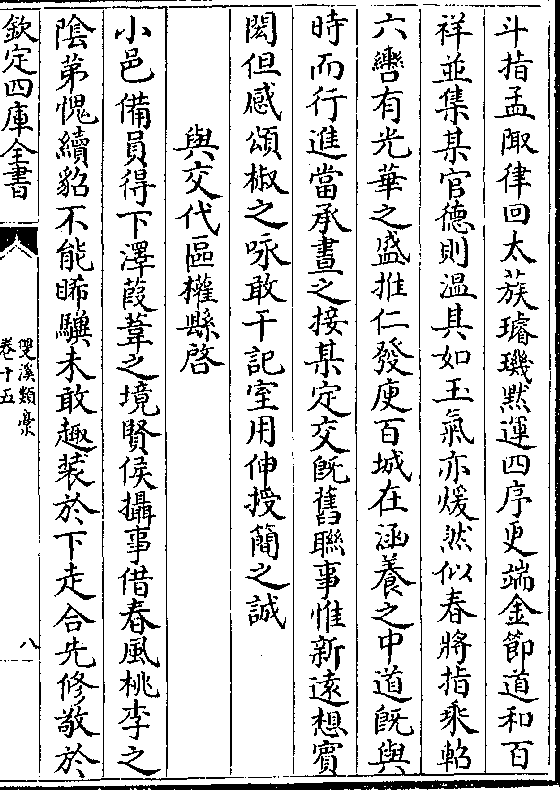 斗指孟陬律回太蔟璿璣黙運四序更端金節道和百
祥並集某官德則温其如玉氣亦煖然似春將指乘軺
六轡有光華之盛推仁發庾百城在涵養之中道旣與
時而行進當承晝之接某定交旣舊聯事惟新遠想賓
閎但感頌椒之咏敢干記室用伸授簡之誠
與交代區權縣啓
小邑備員得下澤葭葦之境賢侯攝事借春風桃李之
隂第愧續貂不能睎驥未敢趣裝於下走合先修敬於
欽定四庫全書
雙溪類槀
卷十五
八